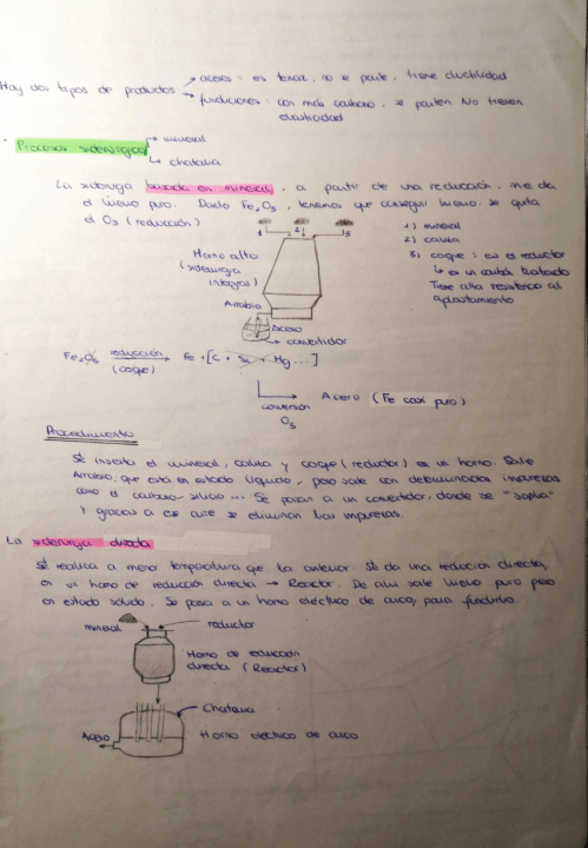 Hay dos tipos de productos → aceros : es tenaz, no se parte, tiene ductilidad
→ fundiciones : con más carbono, se parten No tienen
elasticidad
· Procesos siderúrgicos → mineral
↳ chatarra
La siderurgia basada en mineral, a partir de una reducción, me da
el hierro puro. Dado Fe2O3, tenemos que conseguir hierro. Se quita
el O3 (reducción)
1 2 3
1) mineral
2) caliza
3) coque : es el reductor
↳ es un carbón tratado
Tiene alta resistencia al
aplastamiento
Horno alto
(siderurgia
integral)
Arrabio
Acero
→ convertidor
Fe2O3 reducción (coque) → Fe + [C + Si + Mg ...]
conversión
O3
→ Acero (Fe casi puro)
Procedimiento
Se inserta el mineral, caliza y coque (reductor) en un horno. Sale
Arrabio, que está en estado líquido, pero sale con determinadas impurezas
como el carbono silicio ... Se pasan a un convertidor, donde se "sopla"
y gracias a ese aire se eliminan las impurezas.
La siderurgia directa
Se realiza a menor temperatura que la anterior. Se da una reducción directa,
en un horno de reducción directa → Reactor. De ahí sale hierro puro pero
en estado sólido. Se pasa a un horno eléctrico de arco, para fundirlo.
mineral
reductor
Horno de reducción
directa (Reactor)
Chatarra
Acero
Horno eléctrico de arco